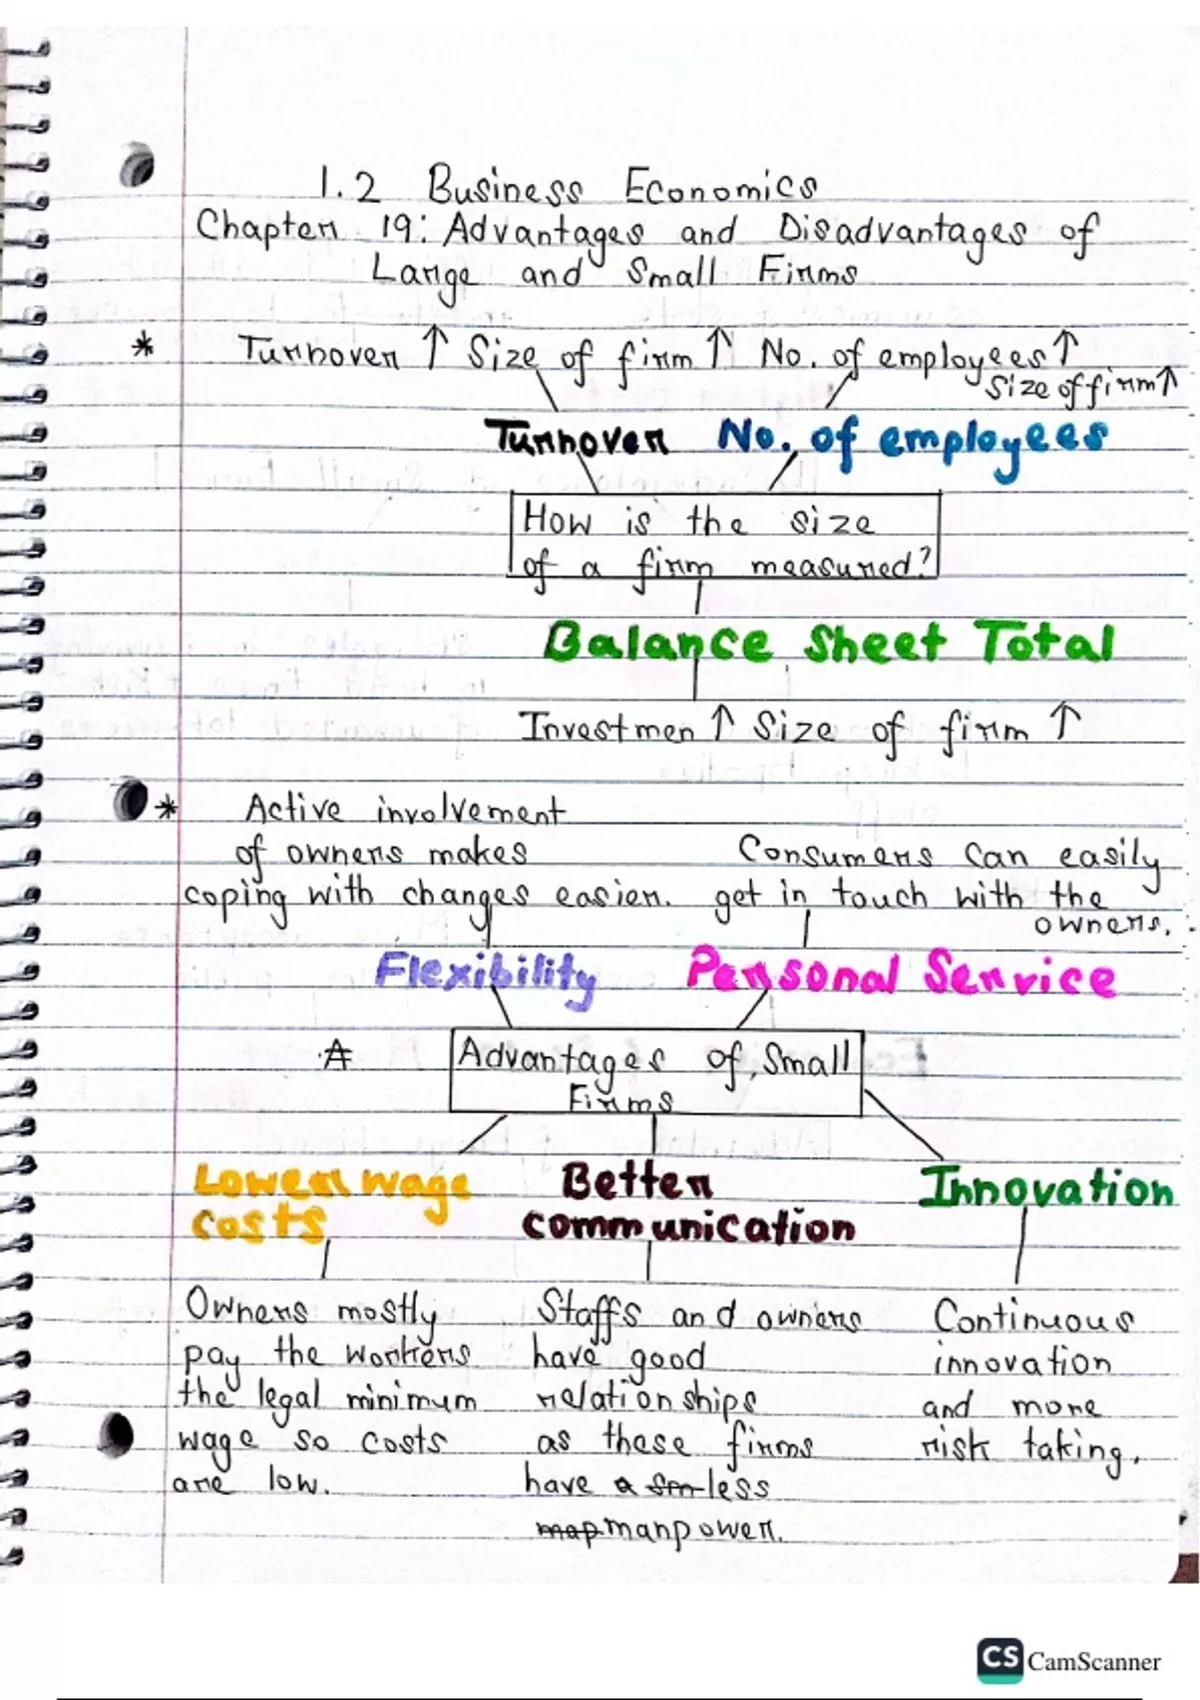 1.2 Business Economics
Chapter 19: Advantages and Disadvantages of
Large and Small Firms
* Turnover ↑ Size of firm ↑ No. of employees ↑
Size of firm ↑
Turnover No. of employees
How is the size
of a firm measured?
Balance Sheet Total
Investmen ↑ Size of firm ↑
* Active involvement
of owners makes
coping with changes easier.
Consumers can easily
get in touch with the
owners.
Flexibility Personal Service
A
Advantages of Small
Firms
Lower wage
costs
Better
communication
Innovation
Owners mostly
pay the workers
the legal minimum
wage so costs
are low.
Staffs and owners
have good
relationships
as these firms
have a sm less
map manpower.
Continuous
innovation
and more
risk taking.
CS CamScanner